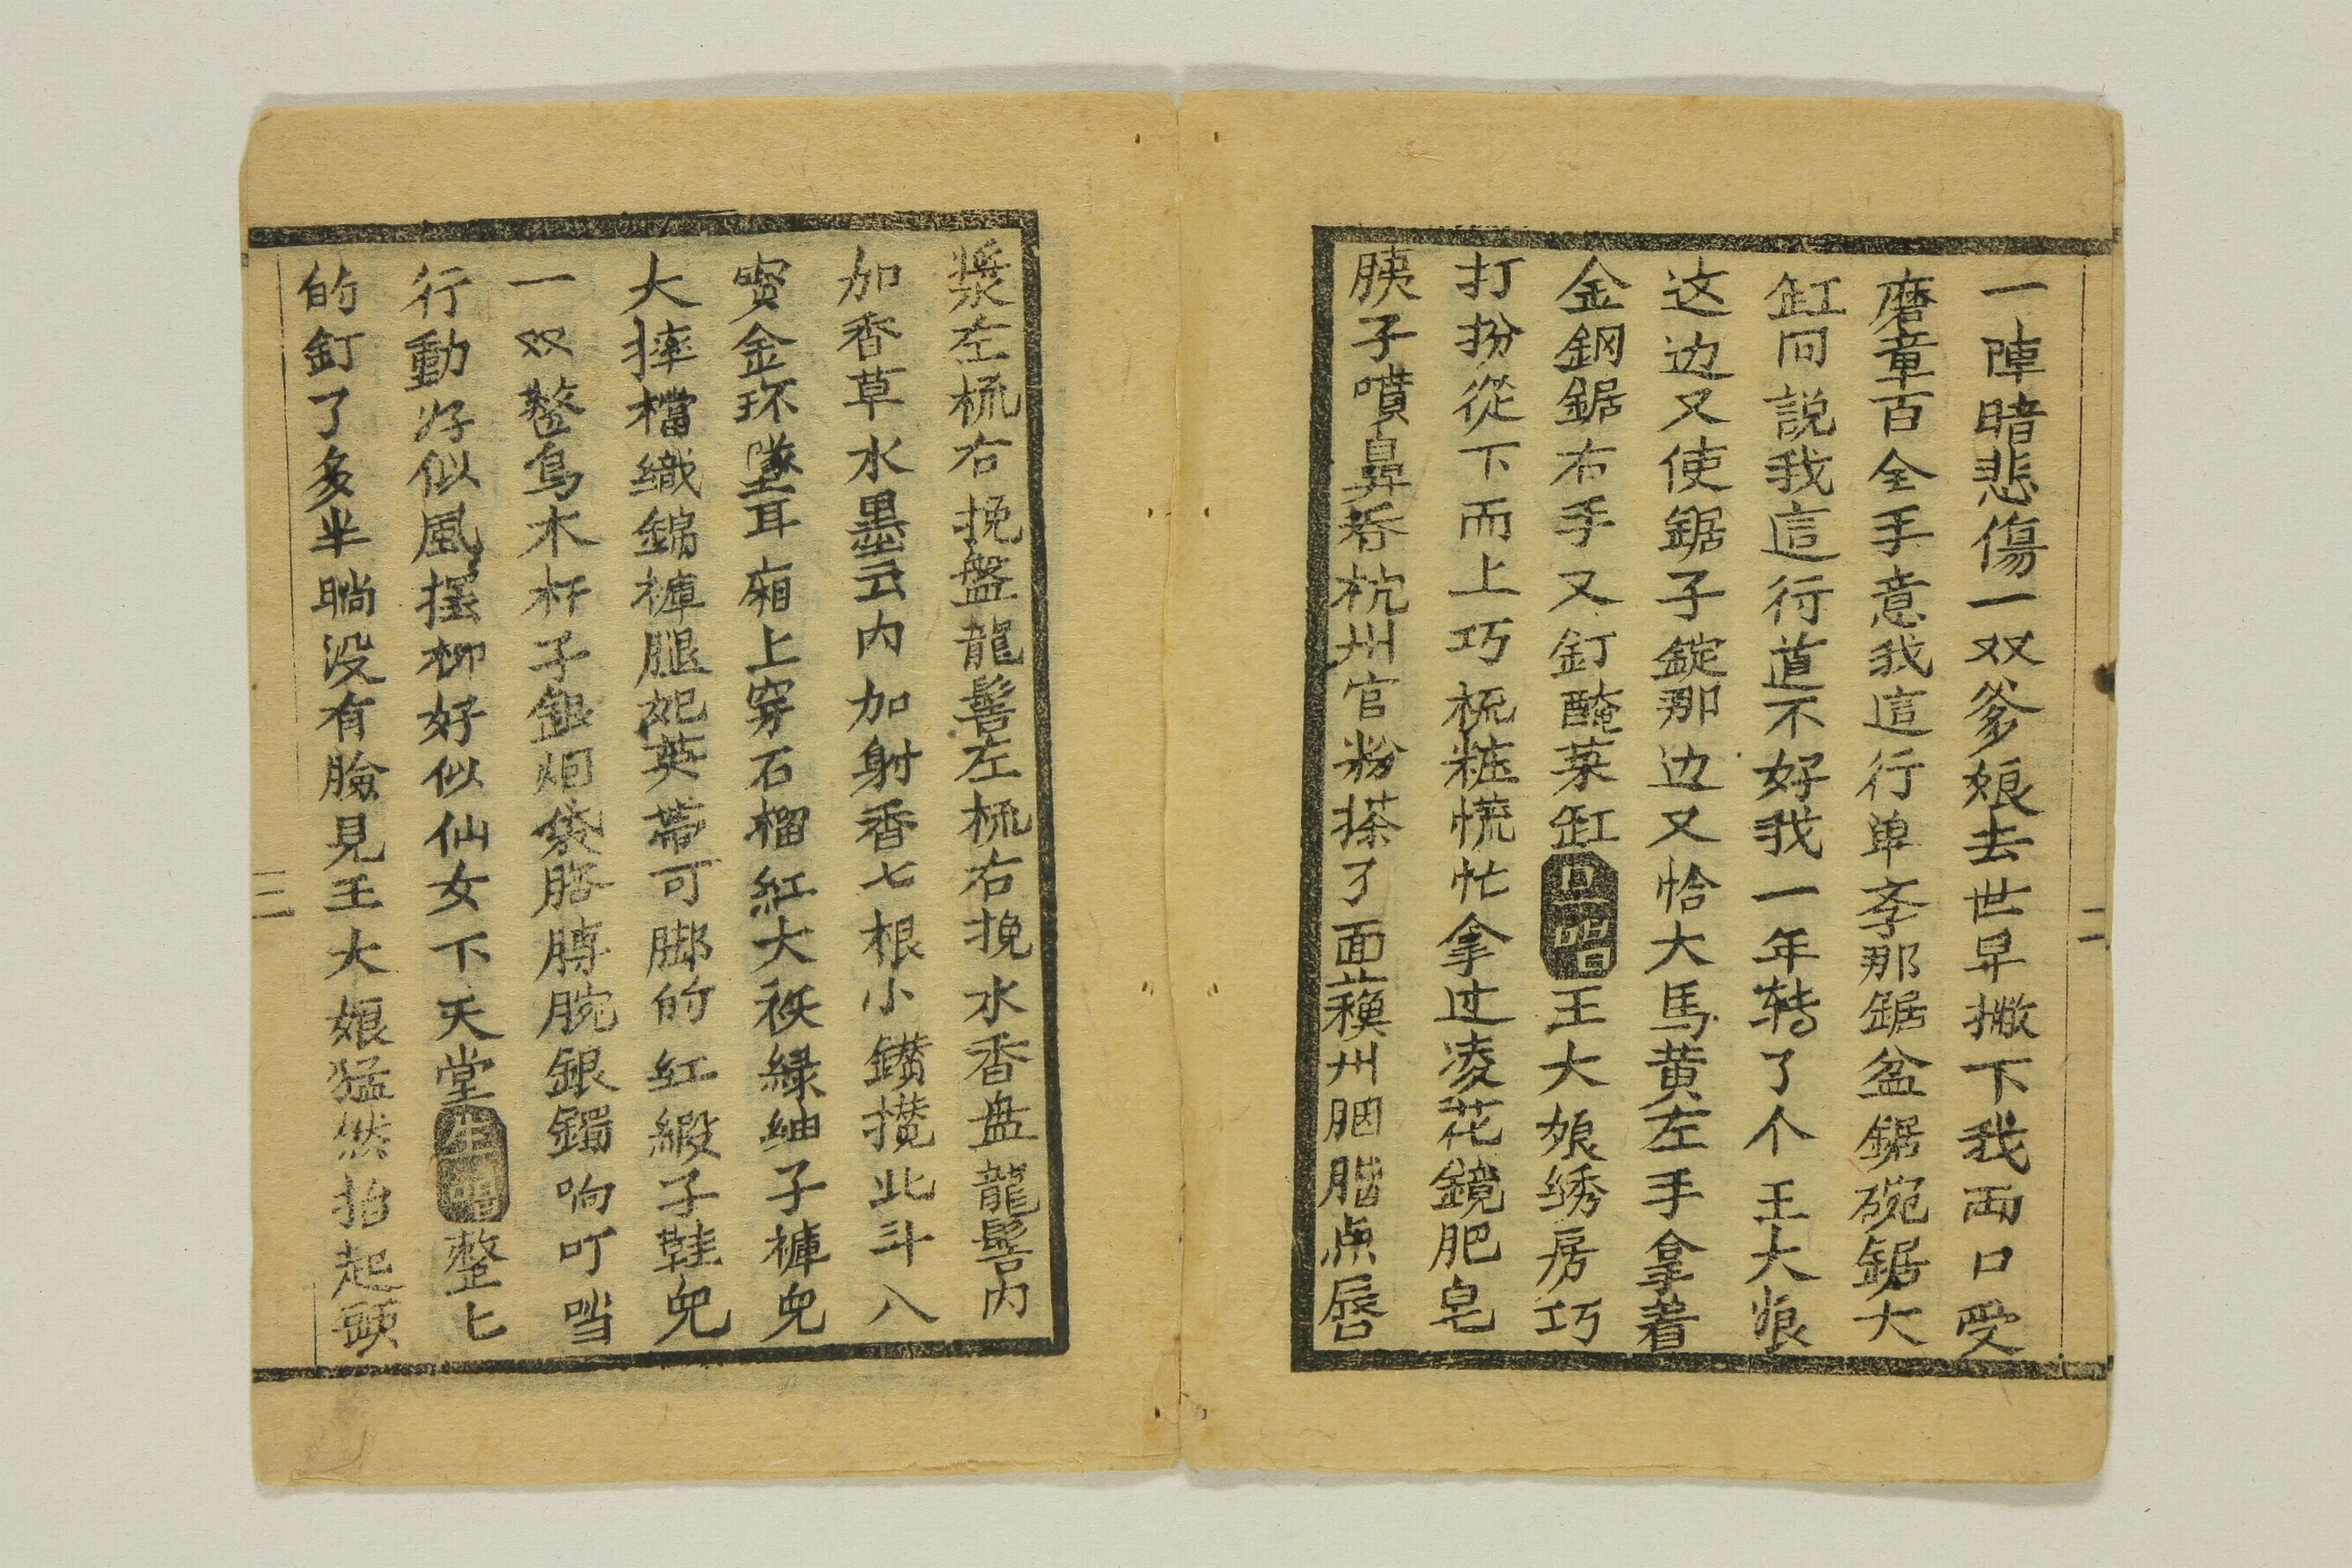 一陣暗悲傷一双爹娘去世早撇下我両口受
磨章百全手意我這行单斈那鋸盆鋸碗鋸大
缸囘説我這行道不好我一年转了个王大娘
这边又使鋸子錠那边又恰大馬黄左手拿着
金鋼鋸右手又釘醃菜缸旦唱王大娘绣房巧
打扮從下而上巧梳粧慌忙拿过凌花鏡肥皂
胰子噴鼻香杭州官粉搽了面蘓州胭脂点唇
二
漿左梳右挽盤龍髻左梳右挽水香盘龍髻内
加香草水墨云内加射香七根小鑚攅北斗八
宝金环墜耳廂上穿石榴紅大袄緑紬子褲兜
大摔襠織錦褲腿妃英帶可脚的紅緞子鞋兜
一双鰲烏木杆子銀烟袋胳膊腕銀鐲响叮当
行動好似風摆柳好似仙女下天堂生唱整匕
的釘了多半晌没有臉見王大娘猛然抬起頭
三